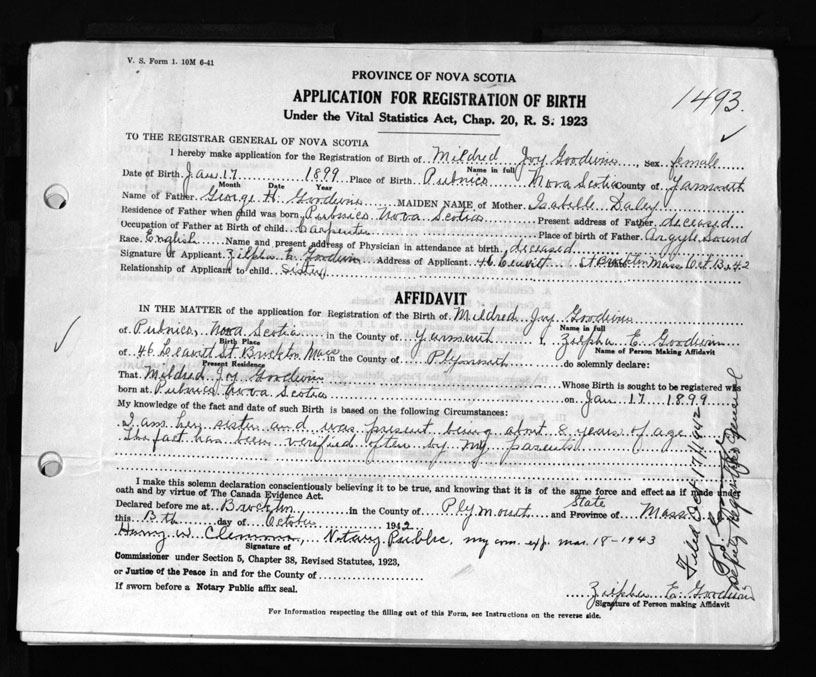 V. S. Form 1. 10M 6-41
PROVINCE OF NOVA SCOTIA
APPLICATION FOR REGISTRATION OF BIRTH
1493.
Under the Vital Statistics Act, Chap. 20, R. S. 1923
TO THE REGISTRAR GENERAL OF NOVA SCOTIA
I hereby make application for the Registration of Birth of Mildred Joy Goodwin, Sex female
Name in full
Date of Birth Jan 17 1899 Place of Birth Pubnico Nova Scotia County of Yarmouth
Month Date Year
Name of Father George H. Goodwin MAIDEN NAME of Mother Isabelle Daley
Residence of Father when child was born Pubnico Nova Scotia Present address of Father deceased
Occupation of Father at Birth of child Carpenter Place of birth of Father Argyle Sound
Race English Name and present address of Physician in attendance at birth deceased
Signature of Applicant Zilpha E. Goodwin Address of Applicant 46 Leavitt St Brockton Mass Oct 13 42
Relationship of Applicant to child sister
AFFIDAVIT
IN THE MATTER of the application for Registration of the Birth of Mildred Joy Goodwin
Name in full
of Pubnico Nova Scotia in the County of Yarmouth I, Zilpha E. Goodwin
Birth Place
Name of Person Making Affidavit
of 46 Leavitt St. Brockton Mass in the County of Plymouth do solemnly declare:
Present Residence
That Mildred Joy Goodwin Whose Birth is sought to be registered was
born at Pubnico Nova Scotia on Jan 17 1899
My knowledge of the fact and date of such Birth is based on the following Circumstances:
I am her sister and was present being about 8 years of age
The fact has been verified often by my parents
I make this solemn declaration conscientiously believing it to be true, and knowing that it is of the same force and effect as if made under
oath and by virtue of The Canada Evidence Act.
Declared before me at Brockton in the County of Plymouth State and Province of Mass
this 13th day of October 1942
Notary Public, my com. exp. mar. 18-1943
Signature of
Commissioner under Section 5, Chapter 38, Revised Statutes, 1923,
or Justice of the Peace in and for the County of
If sworn before a Notary Public affix seal.
Zilpha E. Goodwin
Signature of Person making Affidavit
For Information respecting the filling out of this Form, see Instructions on the reverse side.
Filed Oct 17/1942
Deputy Registrar General